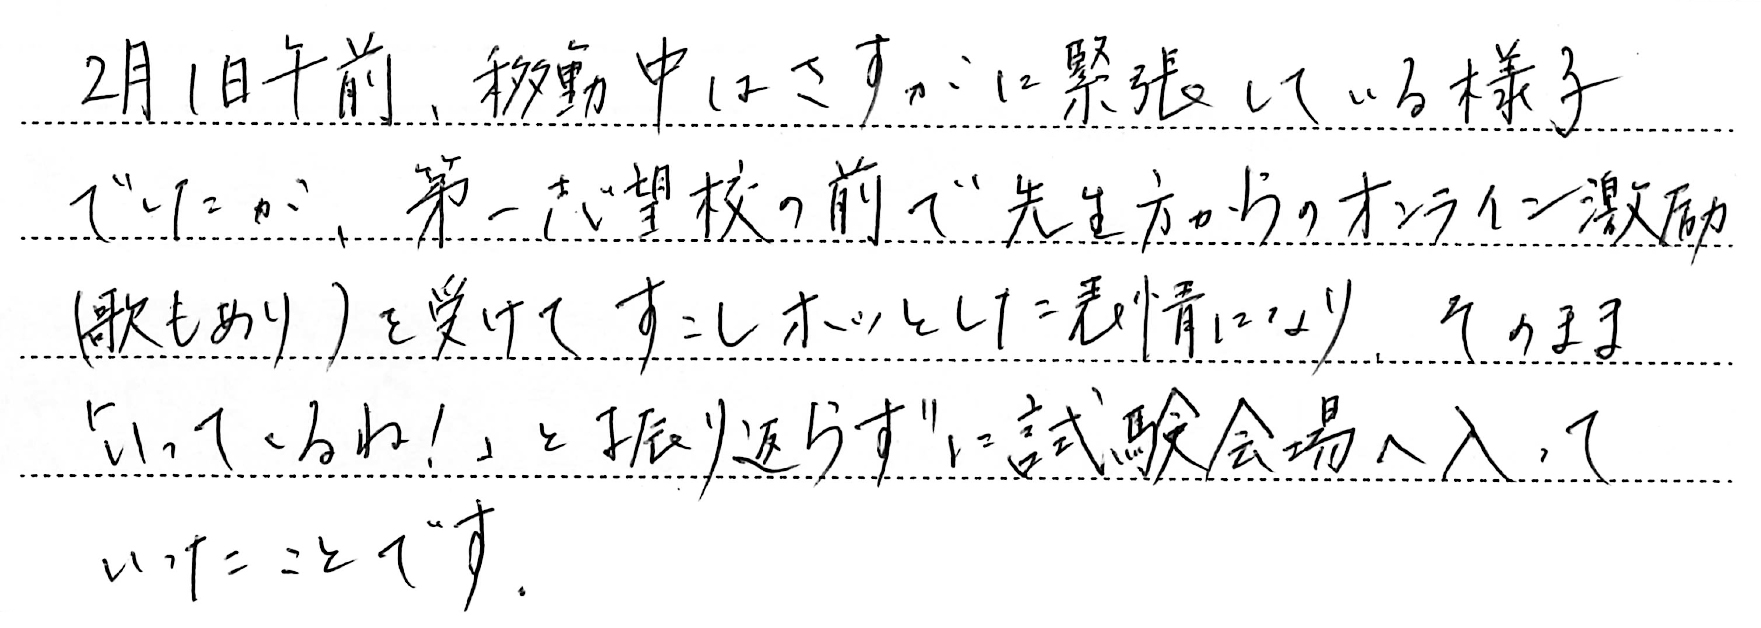 2月1日午前、移動中はさすがに緊張している様子
でしたが、第一志望校の前で先生方からのオンライン激励
(歌もあり)を受けてすこしホッとした表情になり、そのまま
「いってくるね!」と振り返らずに試験会場へ入って
いったことです。